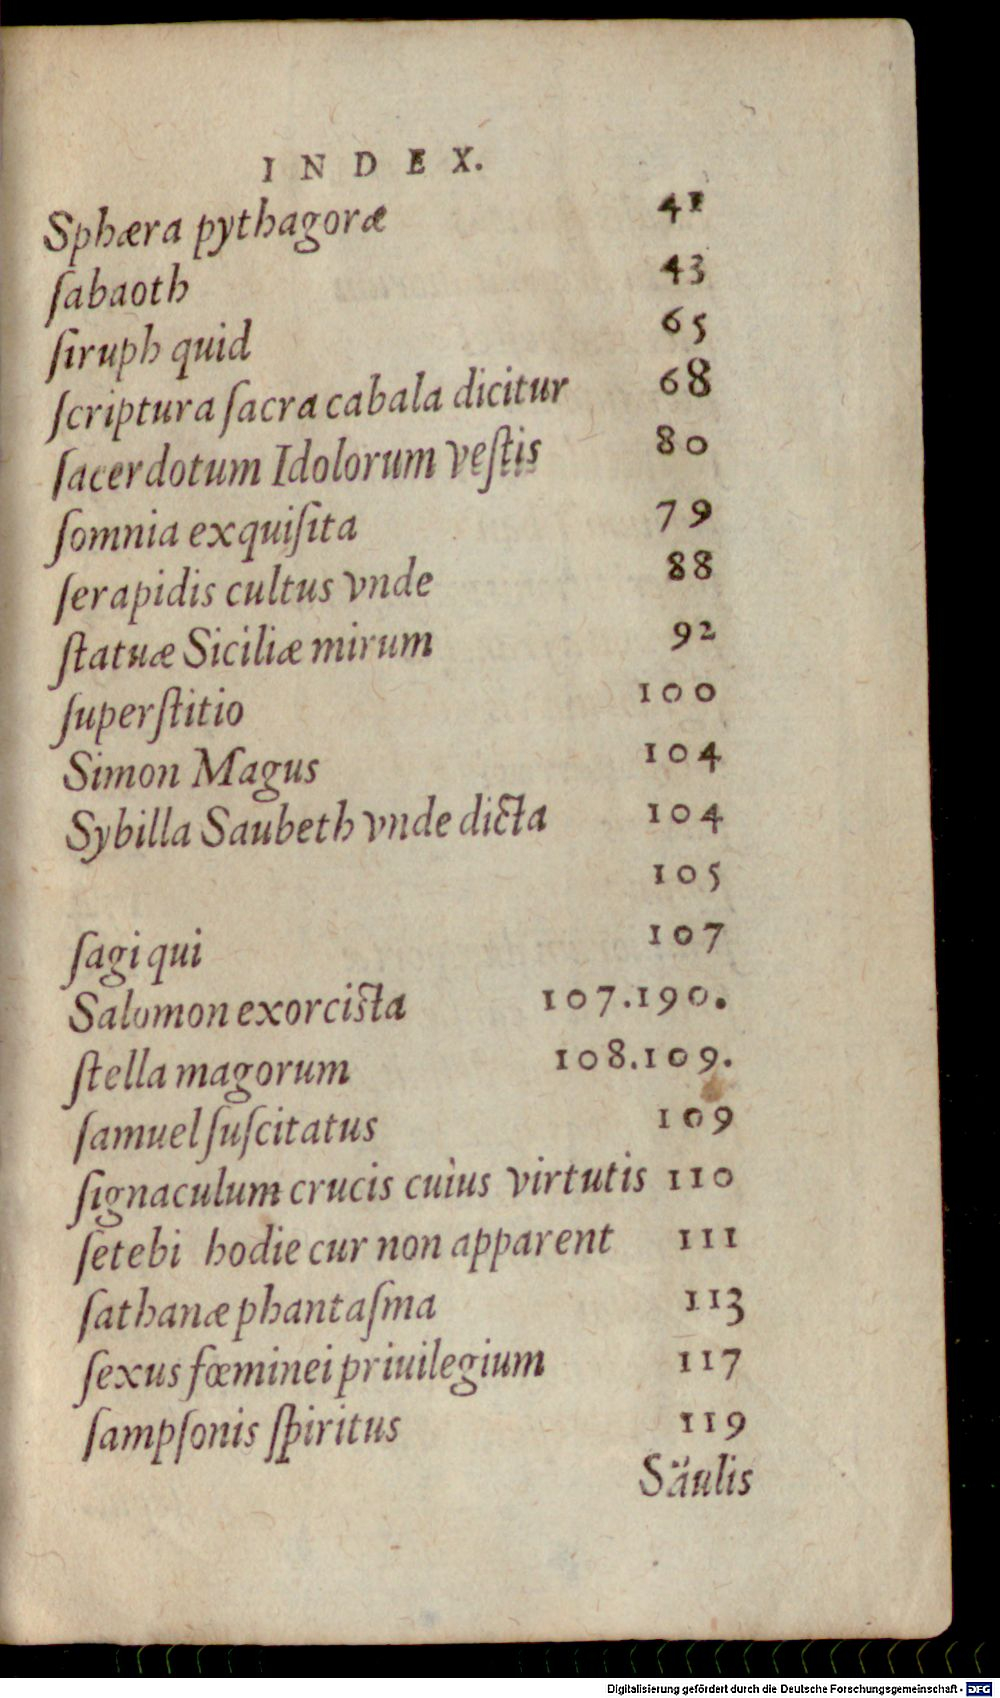 INDEX.
Sphæra pythagoræ 41
ſabaoth 43
ſiruph quid 65
ſcriptura ſacra cabala dicitur 68
ſacerdotum Idolorum veſtis 80
ſomnia exquiſita 79
ſerapidis cultus vnde 88
ſtatuæ Siciliæ mirum 92
ſuperſtitio 100
Simon Magus 104
Sybilla Saubeth vnde dicta 104
105
ſagi qui 107
Salomon exorciſta 107.190.
ſtella magorum 108.109.
ſamuel ſuſcitatus 109
ſignaculum crucis cuìus virtutis 110
ſetebi hodie cur non apparent 111
ſathanæ phantaſma 113
ſexus fœminei priuilegium 117
ſampſonis ſpiritus 119
Säulis
Digitalisierung gefördert durch die Deutsche Forschungsgemeinschaft - DFG